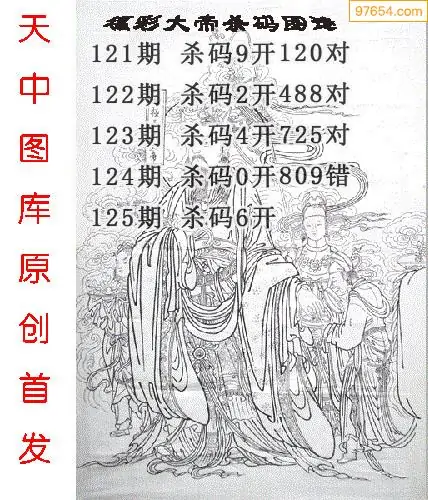 97654.com
福彩大帝杀码图迷
121期 杀码9开120对
122期 杀码2开488对
123期 杀码4开725对
124期 杀码0开809错
125期 杀码6开
天中图库原创首发